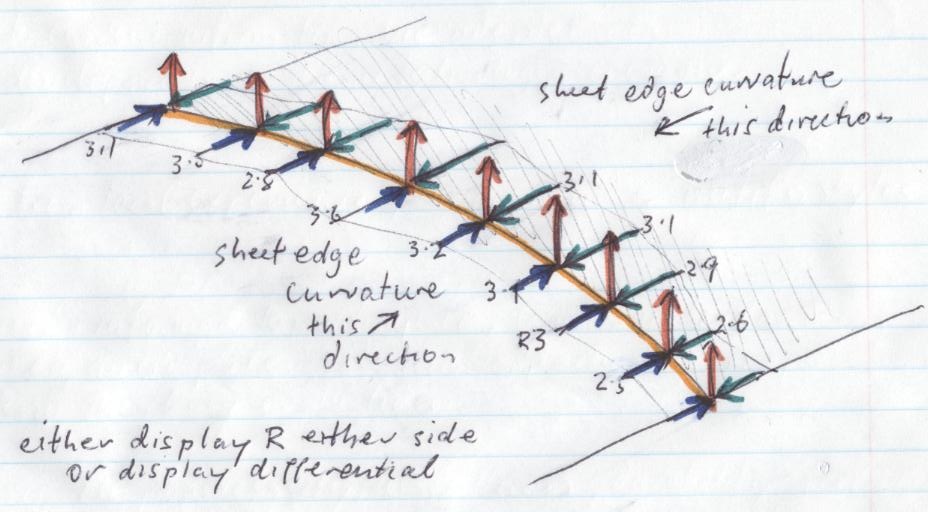 sheet edge curvature
this direction
3.1
3.0
2.8
3.6
3.2
3.1
R3
2.5
3.1
3.1
2.9
2.6
sheet edge
curvature
this
direction
either display R either side
or display differential